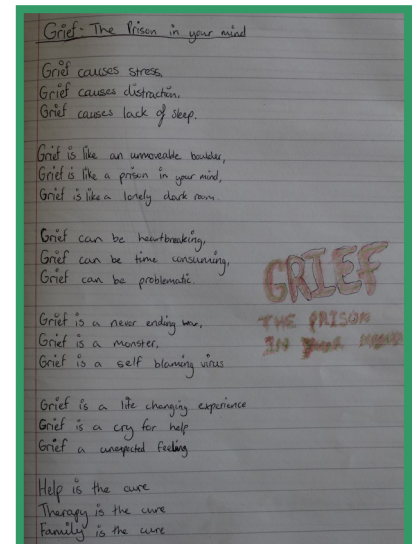 Grief: The Prison in your mind
Grief causes stress,
Grief causes distraction,
Grief causes lack of sleep.
Grief is like an unmoveable boulder,
Grief is like a prison in your mind,
Grief is like a lonely dark room.
Grief can be heartbreaking,
Grief can be time consuming,
Grief can be problematic
GRIEF
THE PRISON
IN YOUR MIND
Grief is a never ending war,
Grief is a monster,
Grief is a self blaming virus
Grief is a life changing experience
Grief is a cry for help
Grief a unexpected feeling
Help is the cure
Therapy is the cure
Family is the cure